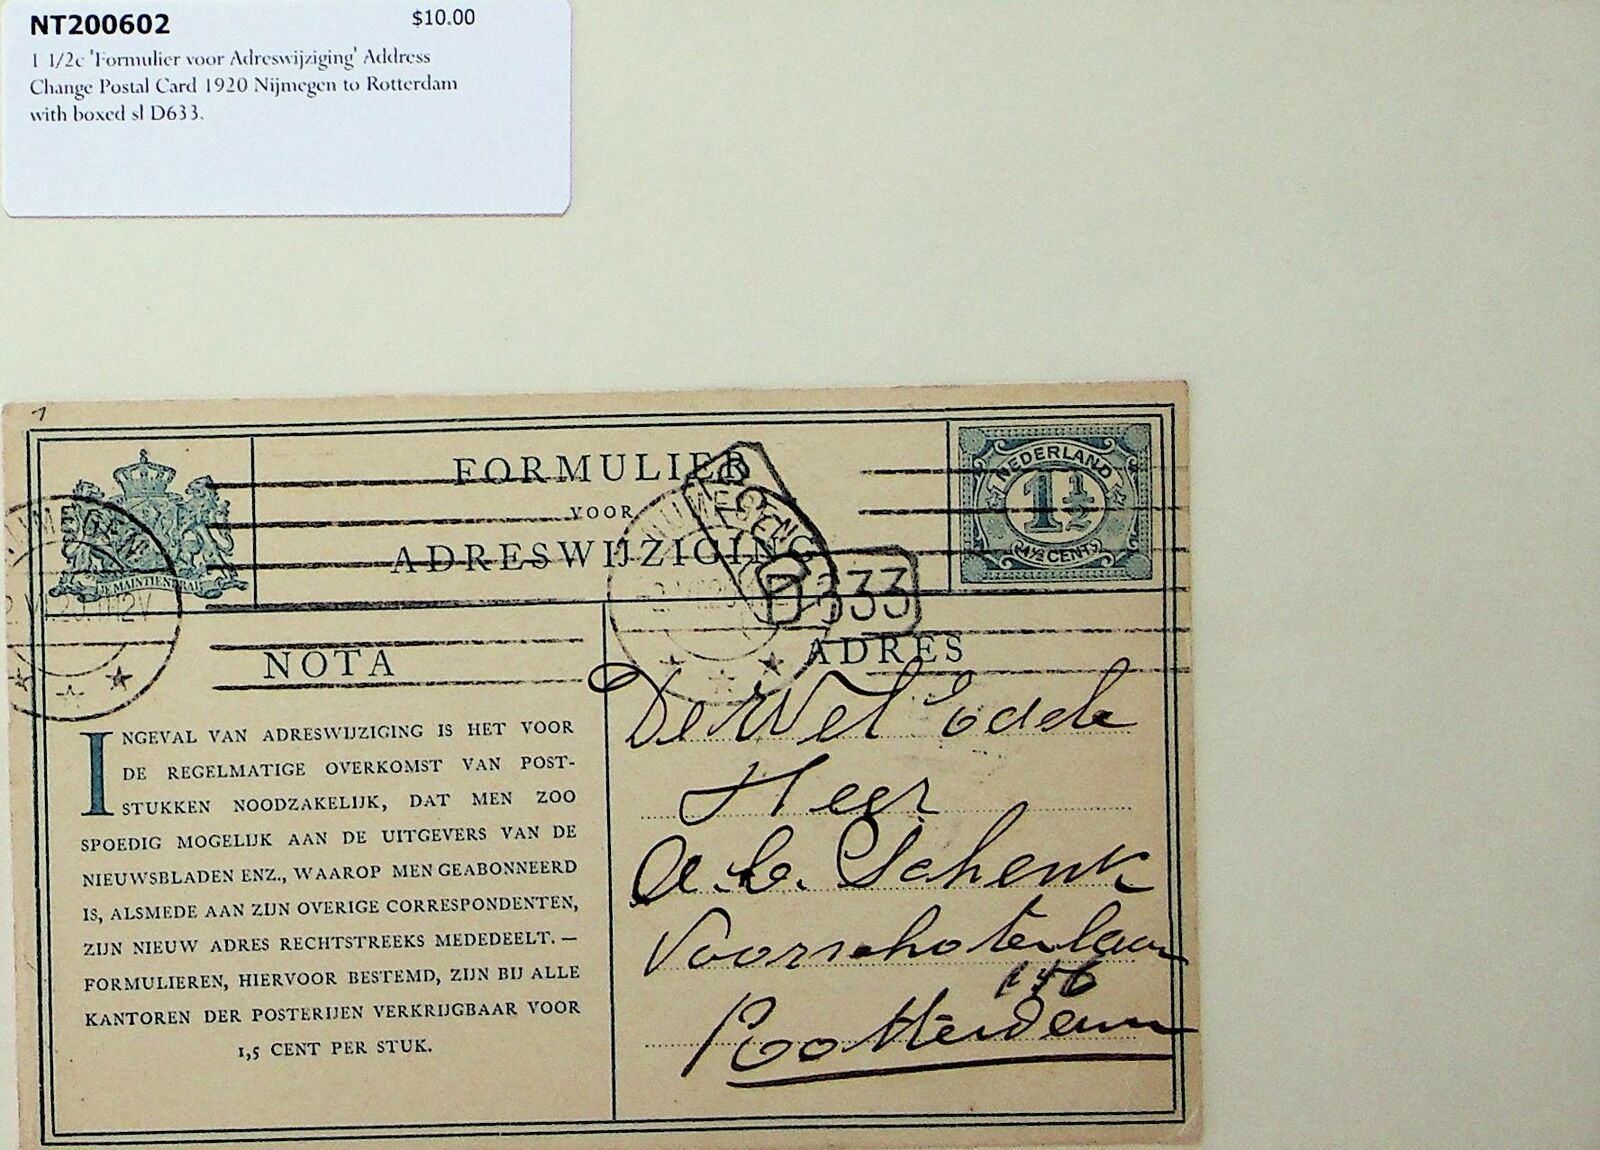 NT200602 $10.00
1 1/2c 'Formulier voor Adreswijziging' Address
Change Postal Card 1920 Nijmegen to Rotterdam
with boxed sl D633.
FORMULIER
VOOR
ADRESWIJZIGING
JE MAINTIENDRAI
NEDERLAND
1½
CENT
NIJMEGEN
NIJMEGEN
D633
NOTA
INGEVAL VAN ADRESWIJZIGING IS HET VOOR
DE REGELMATIGE OVERKOMST VAN POST-
STUKKEN NOODZAKELIJK, DAT MEN ZOO
SPOEDIG MOGELIJK AAN DE UITGEVERS VAN DE
NIEUWSBLADEN ENZ., WAAROP MEN GEABONNEERD
IS, ALSMEDE AAN ZIJN OVERIGE CORRESPONDENTEN,
ZIJN NIEUW ADRES RECHTSTREEKS MEDEDEELT. —
FORMULIEREN, HIERVOOR BESTEMD, ZIJN BIJ ALLE
KANTOREN DER POSTERIJEN VERKRIJGBAAR VOOR
1,5 CENT PER STUK.
ADRES
De Wel Edele
Heer
A. C. Schenk
Voorschoterlaan
146
Rotterdam